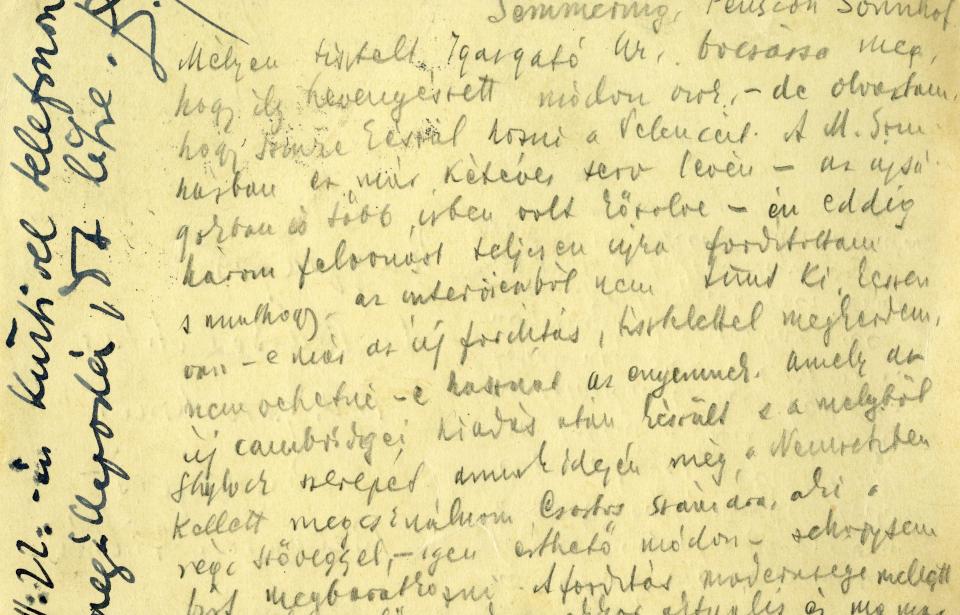 Semmering, Pension Sonnhof
Mélyen tisztelt Igazgató Úr, bocsássa meg,
hogy ily hevenyészett módon írok, – de olvastam,
hogy Szinre hozni a Velenceit. A M. Szin-
házban ez már kétéves terv lévén – az újsá-
gokban is több ízben volt közölve – én eddig
három felvonást teljesen újra fordítottam
s minthogy az interviewból nem tünt ki, készen
van-e már az új fordítás, tisztelettel megkérdem,
nem vehetné-e hasznát az enyémnek, amely az
új cambridgei kiadás után készült s a melyből
Shylock szerepét annak idején még a Nemzetiben
kellett megcsinálnom Csortos számára, aki a
régi szöveggel, – igen érthető módon – sehogysem
tudott megbarátkozni. A fordítás modernsége mellett
22.-én Kürtivel telefonon
megállapodás jött létre.